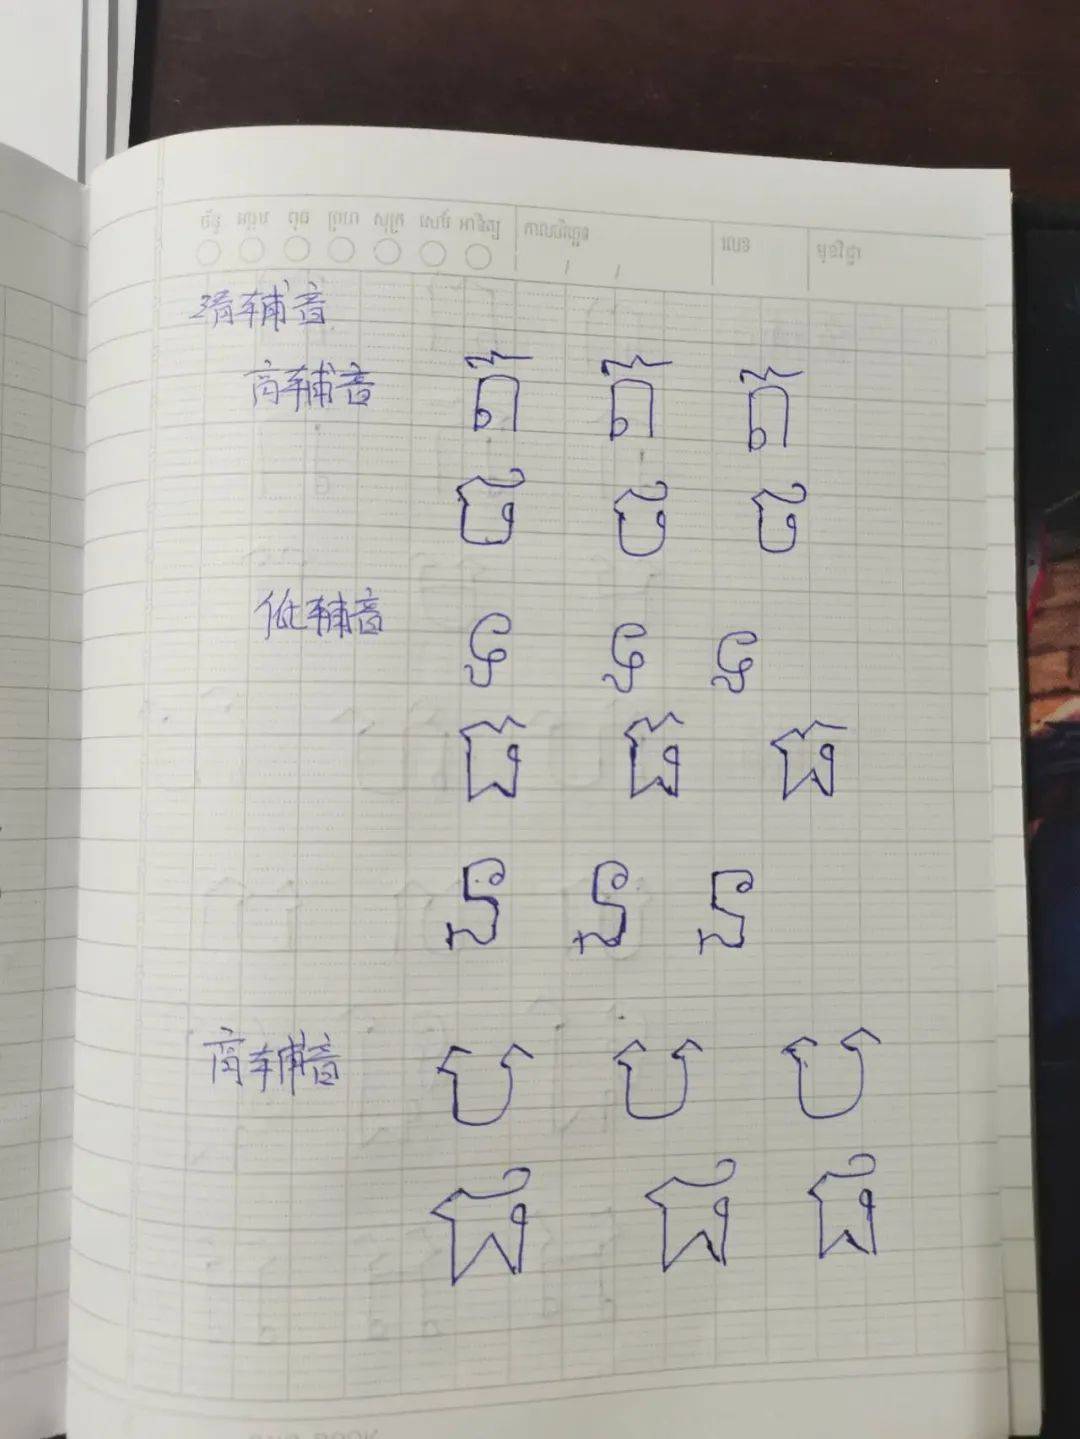 ច័ន្ទ អង្គារ ពុធ ព្រហ សុក្រ សៅរ៍ អាទិត្យ កាលបរិច្ឆេទ លេខ មុខវិជ្ជា
清辅音
高辅音 ត ត ត
ថ ថ ថ
低辅音 ទ ទ ទ
ធ ធ ធ
ន ន ន
高辅音 ប ប ប
ផ ផ ផ